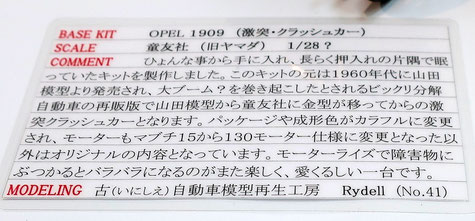 BASE KIT OPEL 1909 （激突・クラッシュカー）
SCALE 童友社 （旧ヤマダ） 1/28？
COMMENT ひょんな事から手に入れ、長らく押入れの片隅で眠
っていたキットを製作しました。このキットの元は1960年代に山田
模型より発売され、大ブーム？を巻き起こしたとされるビックリ分解
自動車の再販版で山田模型から童友社に金型が移ってからの激
突クラッシュカーとなります。パッケージや成形色がカラフルに変更
され、モーターもマブチ15から130モーター仕様に変更となった以
外はオリジナルの内容となっています。モーターライズで障害物に
ぶつかるとバラバラになるのがまた楽しく、愛くるしい一台です。
MODELING 古（いにしえ）自動車模型再生工房 Rydell （No.41）